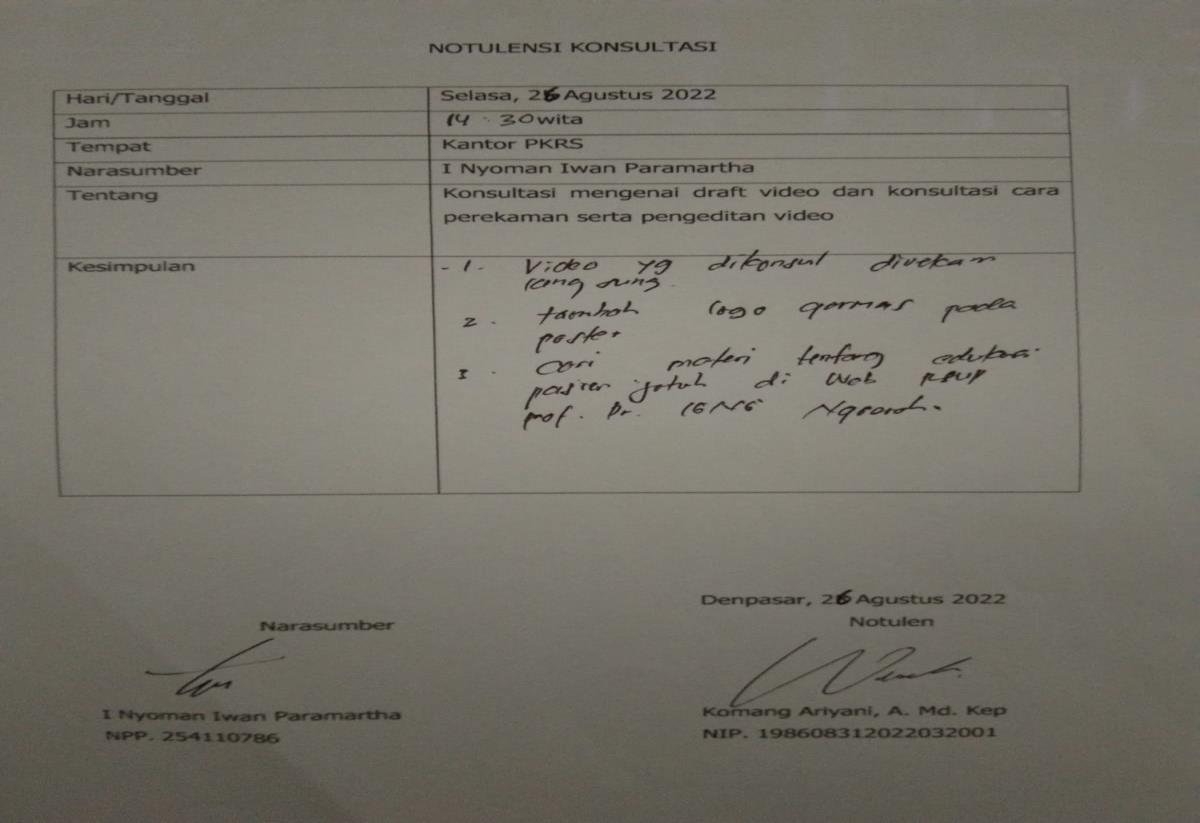 NOTULENSI KONSULTASI
Hari/Tanggal Selasa, 26 Agustus 2022
Jam 14 : 30 wita
Tempat Kantor PKRS
Narasumber I Nyoman Iwan Paramartha
Tentang Konsultasi mengenai draft video dan konsultasi cara
perekaman serta pengeditan video
Kesimpulan - 1. Video yg dikonsul direkam
langsung.
2. tambah logo germas pada
poster
3. Cari materi tentang edukasi
pasien jatuh di Web RSUP
Prof. Dr. IGNG Ngoerah.
Denpasar, 26 Agustus 2022
Narasumber Notulen
I Nyoman Iwan Paramartha Komang Ariyani, A. Md. Kep
NPP. 254110786 NIP. 198608312022032001